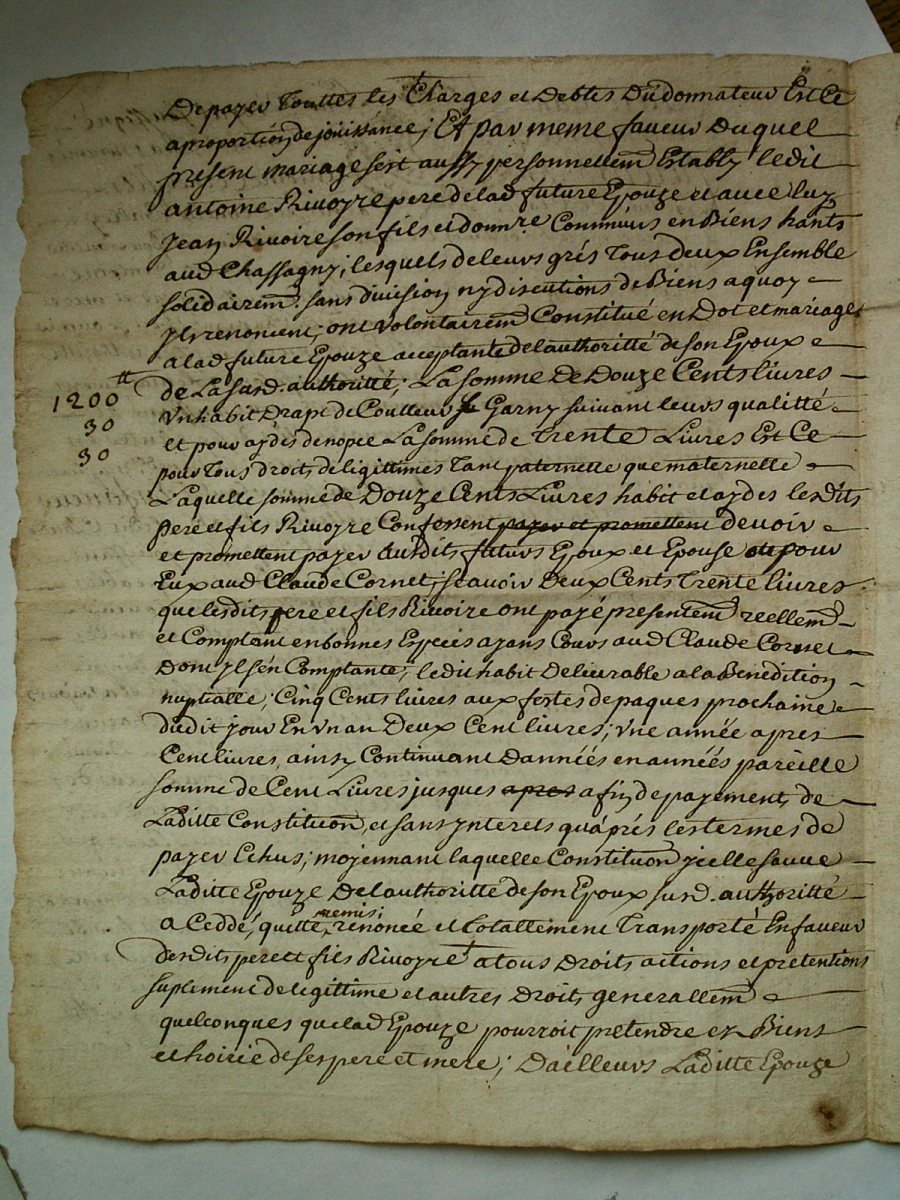 De payer Touttes les Charges et Debtes Du donnateur Est Ce
a proportion de joüissance; Et par meme faveur Duquel
present mariage s'est aussy personnellem̄ Estably ledit
antoine Rivoyre pere de lad future Epouze et avec luy
Jean Rivoire son fils et donnre Communs en Biens hants
aud Chassagny; lesquels de leurs grés Tous deux Ensemble
solidairem̄. sans division ny discutions de Biens a quoy
yls renoncent; ont volontairem̄ Constitué en Dot et mariage
a lad future Epouze acceptante de l'authoritté de son Epoux
1200 ₶
de La susd. authoritté; La somme De Douze Cents livres
30
Vn habit Drap de Coulleur Garny suivant leurs qualitté
30
et pour aydes de nopce La somme de Trente Livres Est Ce
pour Tous droits de ligittimes Tant paternelle que maternelle
Laquelle somme de Douze Cents Livres habit et aydes lesdits
pere et fils Rivoyre Confessent payer et promettent devoir
et promettent payer Ausdits futurs Epoux et Epouse et pour
Eux aud Claude Cornet; scavoir Deux Cents Trente livres
que lesdits pere et fils Rivoire ont payé presentem̄ reellem̄
et Comptant en bonnes Especes ayans Cours aud Claude Cornet
Dont yl s'en Comptante; ledit habit Delivrable a la Benedition
nuptialle; Cinq Cents livres aux festes de paques prochaine
dudit jour En Vn an Deux Cent livres; Vne année apres
Cent livres, ainsy Continuant D'annéés en annéés pareille
somme de Cent Livres jusques apres a fin de payement, de
Laditte Constitution, et sans ynterets qu'aprés les termes de
payer Echus; moyennant laquelle Constitution ycelle sauve
Laditte Epouze De l'authoritté de son Epoux susd. authoritté
remis;
a Ceddé, quitté, renoncé et totallement Transporté En faveur
desdits pere et fils Rivoyre a tous Droits actions et pretentions
suplement de legittime et autres Droits generallem̄
quelconques que lad Epouze pourroit pretendre ex Biens
et hoirie de ses pere et mere; D'ailleurs Laditte Epouze